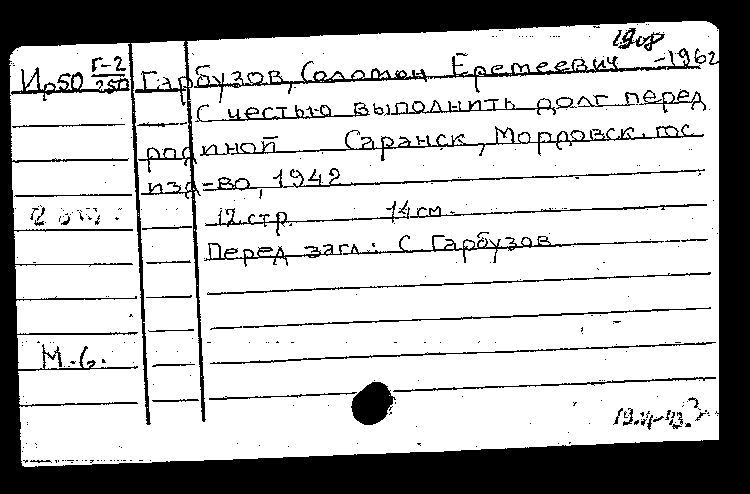 1908
Ир50 Г-2/250 Гарбузов, Соломон Еремеевич -1962
С честью выполнить долг перед
родиной Саранск, Мордовск. гос
изд=во, 1942
12 стр. 14 см.
Перед загл.: С. Гарбузов
М.б.